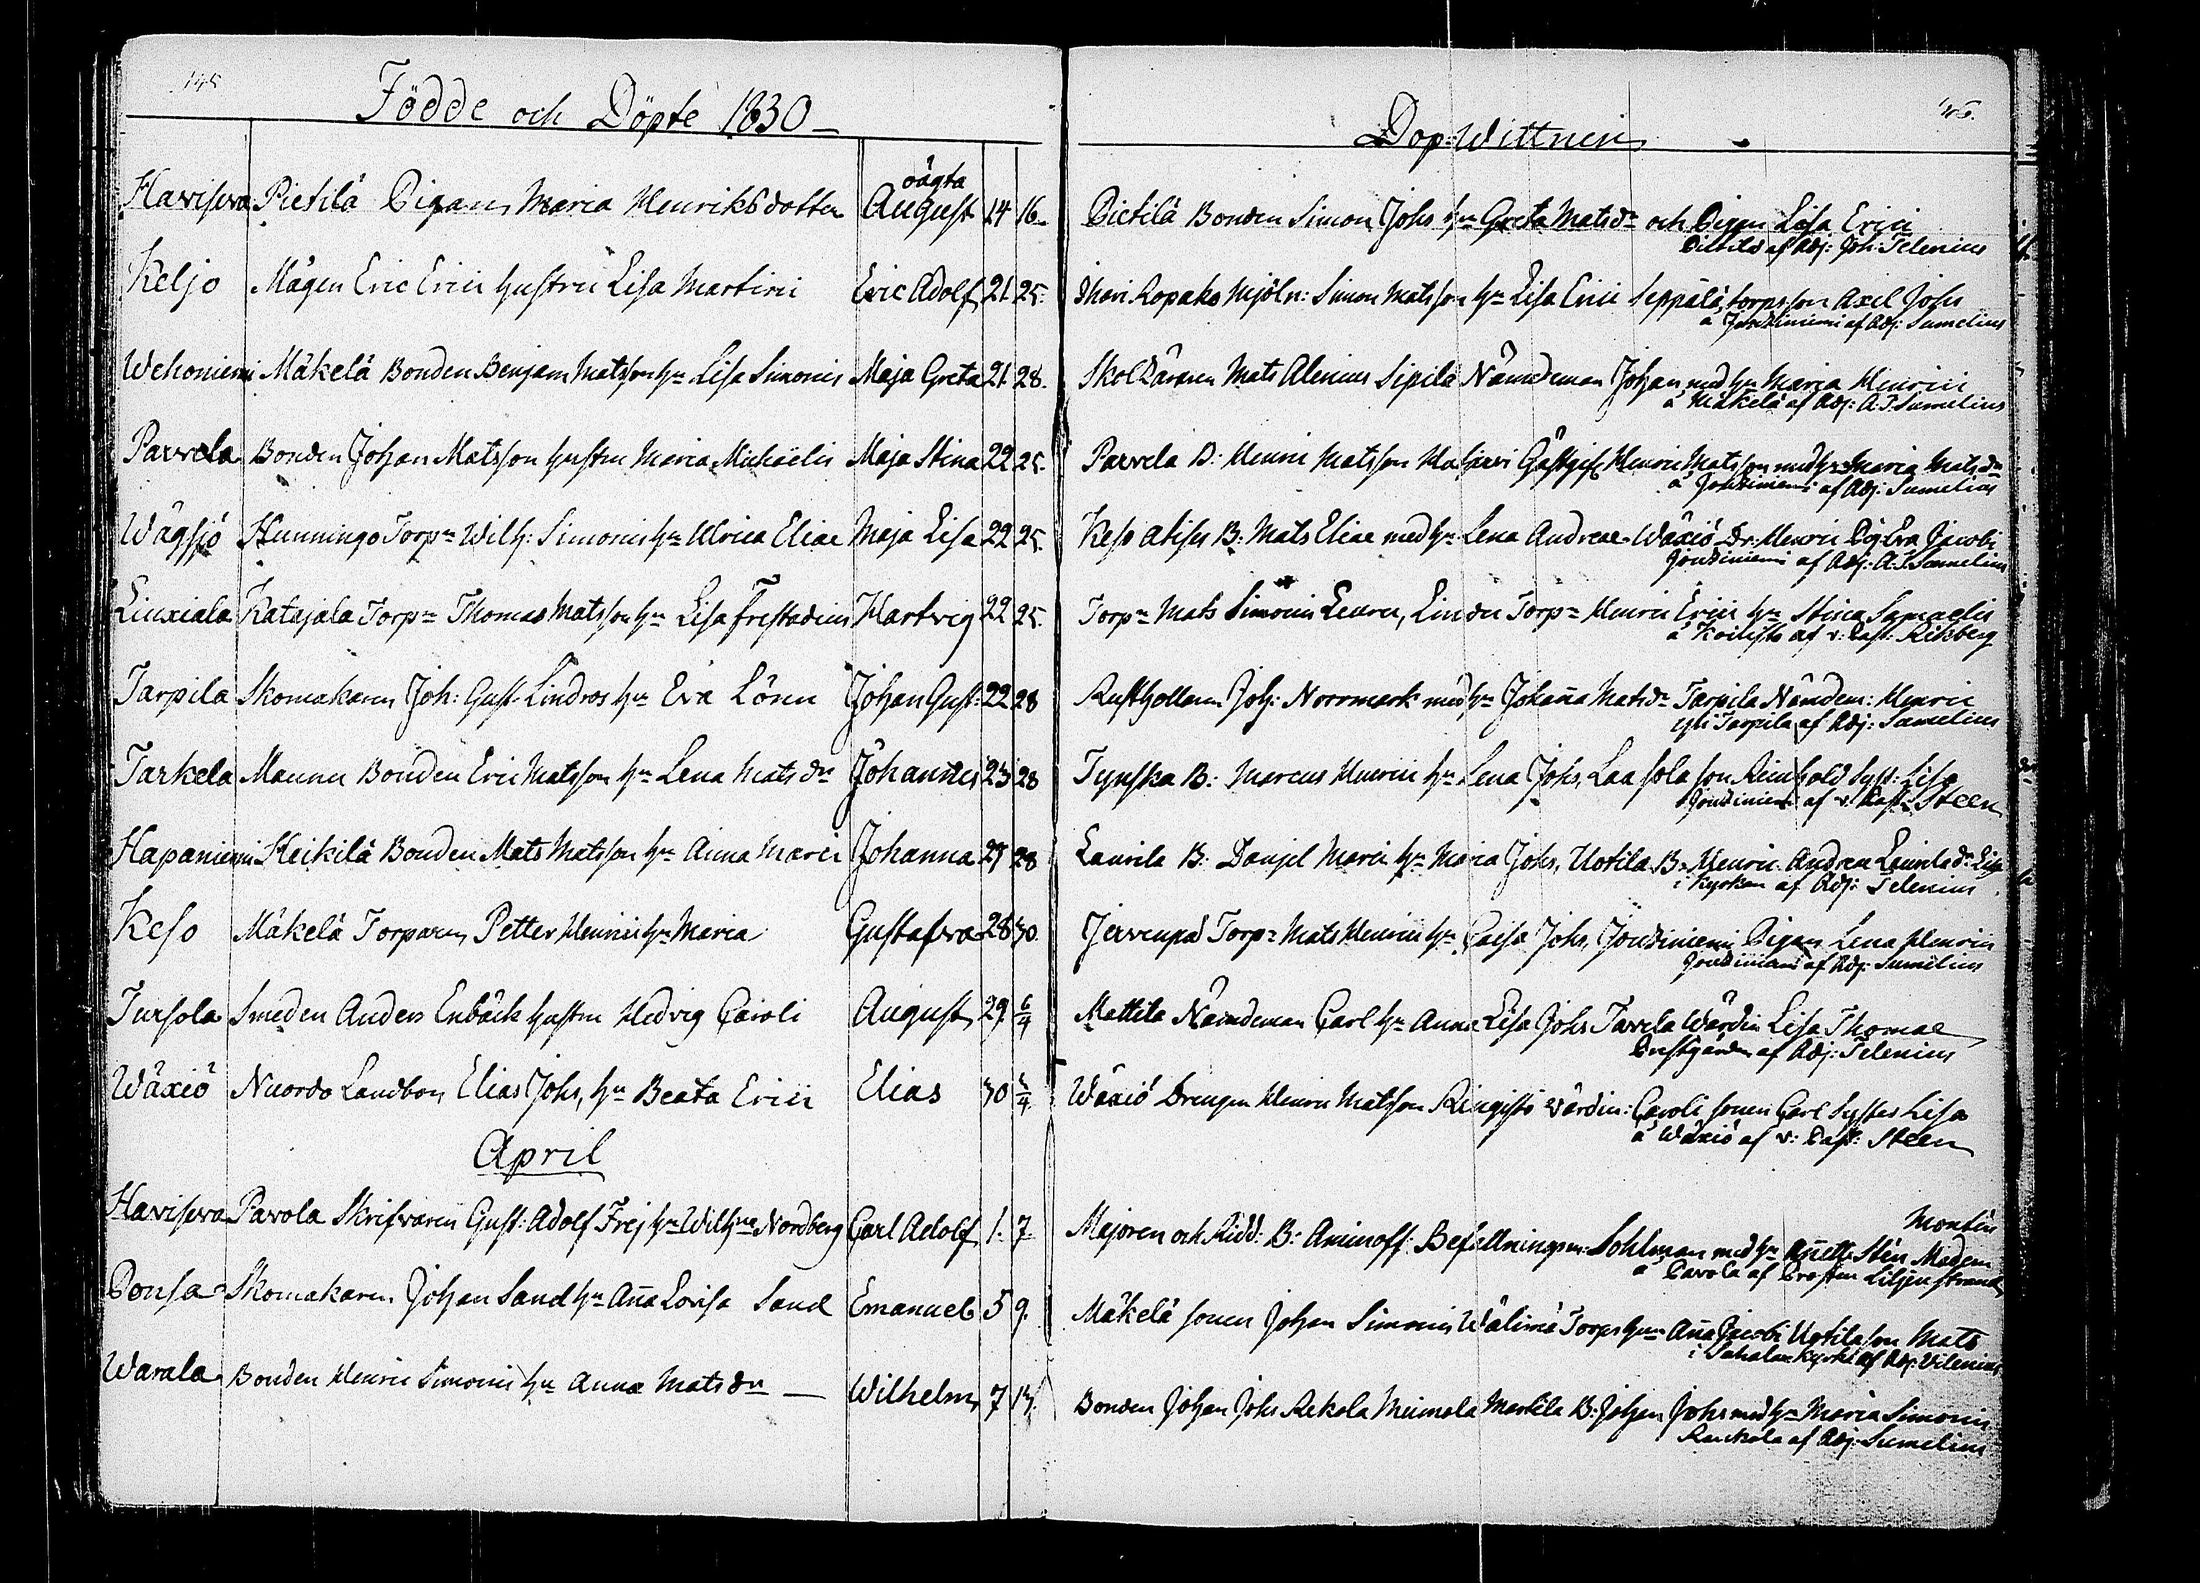 145
Födde och Döpte 1830
Haviseva Pietilä Pigan Maria Henriksdotter oägta August 14 16
Keljo Mågen Eric Erici hustru Lisa Martini Eric Adolf 21 25.
Wehoniemi Mäkelä Bonden Benjam Matsson hu Lisa Simonis Maja Greta 21 28.
Pavvela Bonden Johan Matsson hustru Maria Michaëlis Maja Stina 22 25.
Wägsjö Hunningo Torpn Wilh: Simonis hu Ulrica Eliae Maja Lisa 22 25.
Liuxiala Katajala Torpn Thomas Matsson hu Lisa Frestadius Hartvig 22 25.
Tarpila Skomakaren Joh: Gust. Lindros hu Eva Lönn Johan Gust: 22 28
Tarkela Maunu Bonden Eric Matsson hu Lena Matsdr Johannes 23 28
Hapaniemi Heikilä Bonden Mats Matsson hu Anna Marci Johanna 27 28
Keso Mäkelä Torparen Petter Henrici hu Maria Gustafva 28 30.
Tursola Smeden Anders Enbäck hustru Hedvig Caroli August 29 6/4
Wäxiö Nuordo Landbon Elias Johs, hu Beata Erici Elias 30 /4
April
Haviseva Pavola Skrifvaren Gust: Adolf Frej hu Wilhna Nordberg Carl Adolf 1. 7.
Ponsa Skomakaren Johan Sand hu Aña Lovisa Sand Emanuel 5 9.
Warala Bonden Henric Simonis hu Anna Matsdr — Wilhelm 7
146.
Dop: Wittnen
Pietilä Bonden Simon Johs hu Greta Matsdr och Pigan Lisa Erici
Pietilä af Adj: Joh: Telenius
Ropako Mjöln: Simon Matsson hu Lisa Erici Seppälä, torps son Axel Johs
å Joudiniemi af Adj: Sumelius
Skol Läraren Mats Alenius Sipilä Nämdeman Johan med hu Maria Henrici
å Mäkelä af Adj: A.J. Sumelius
Pavvela B: Henric Matsson Gästgif: Henric Matsson med hu Maria Matsdr
å Joudiniemi af Adj: Sumelius
Keso B: Mats Eliae med hu Lena Andreae Wäxiö Dr: Henric Pig Eva Jacobi
Joudiniemi af Adj: A.J. Sumelius
Torpn Mats Simonis Torpn Henric Erici hu Stina Samaelis
å af v: Past: Rikberg
Rusthollaren Joh: Norrmark med hu Johaña Matsdr Tarpila Nämdem: Henric
Tarpila af Adj: Sumelius
B: Marcus Henrici hu Lena Johs, son Reinhold Syst: Lisa
Joudiniemi af v: Past: Steen
Laurila B: Danjel Marci hu Maria Johs, Uotila B: Henric Andreae Laurila dr Lisa
i Kyrkan af Adj: Telenius
Torpn Mats Henrici hu Caisa Johs, Joudiniemi Pigan Lena Henrici
Joudiniemi af Adj: Sumelius
Mattila Nämdeman Carl hu Anna Lisa Johs Tavela Wärdin Lisa Thomae
Prestgården af Adj: Telenius
Wäxiö Drengen Henric Matsson värdin: Caroli sonen Carl Syster Lisa
å Wäxiö af v: Past: Steen
Majoren och Ridd: B: Aminoff: Befallningsm: Sohlman med hu Añette Stén Madem Montin
å Pavola af Prosten Liljenstrand
Mäkelä sonen Johan Simonis Wälimä Torps hun Aña Jacobi Uotila son Mats
i Sahalax Kyrka af Adj:
Bonden Johan Johs Rekola Meimola Markila B: Johan Johs med hu Maria Simonis
af Adj: Sumelius